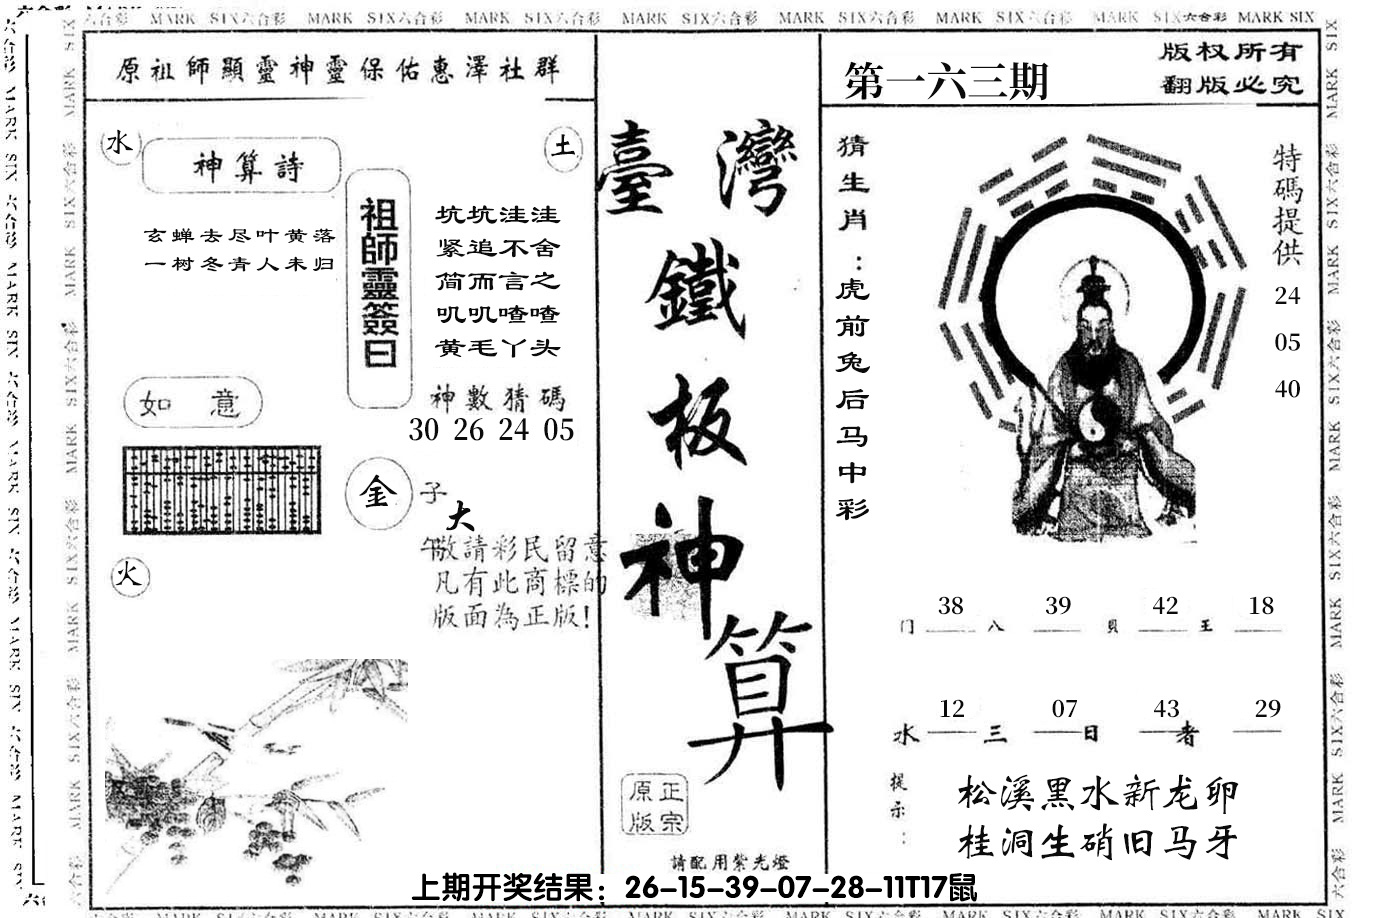 MARK SIX六合彩 MARK SIX六合彩 MARK SIX六合彩 MARK SIX六合彩 MARK SIX六合彩 MARK SIX六合彩 MARK SIX六合彩 MARK SIX六合彩 MARK SIX
原祖師顯靈神靈保佑惠澤社群
水
神算詩
玄蝉去尽叶黄落
一树冬青人未归
土
祖師靈簽曰
坑坑洼洼
紧追不舍
简而言之
叽叽喳喳
黄毛丫头
神數猜碼
30 26 24 05
如 意
金
子
大
午
敬請彩民留意
凡有此商標的
版面為正版!
火
臺灣
鐵
板
神
算
正宗
原版
請配用紫光燈
第一六三期
版权所有
翻版必究
猜生肖:虎前兔后马中彩
特碼提供
24
05
40
38 39 42 18
门 八 貝 王
12 07 43 29
水 三 日 者
提示:
松溪黑水新龙卵
桂洞生硝旧马牙
上期开奖结果：26-15-39-07-28-11T17鼠